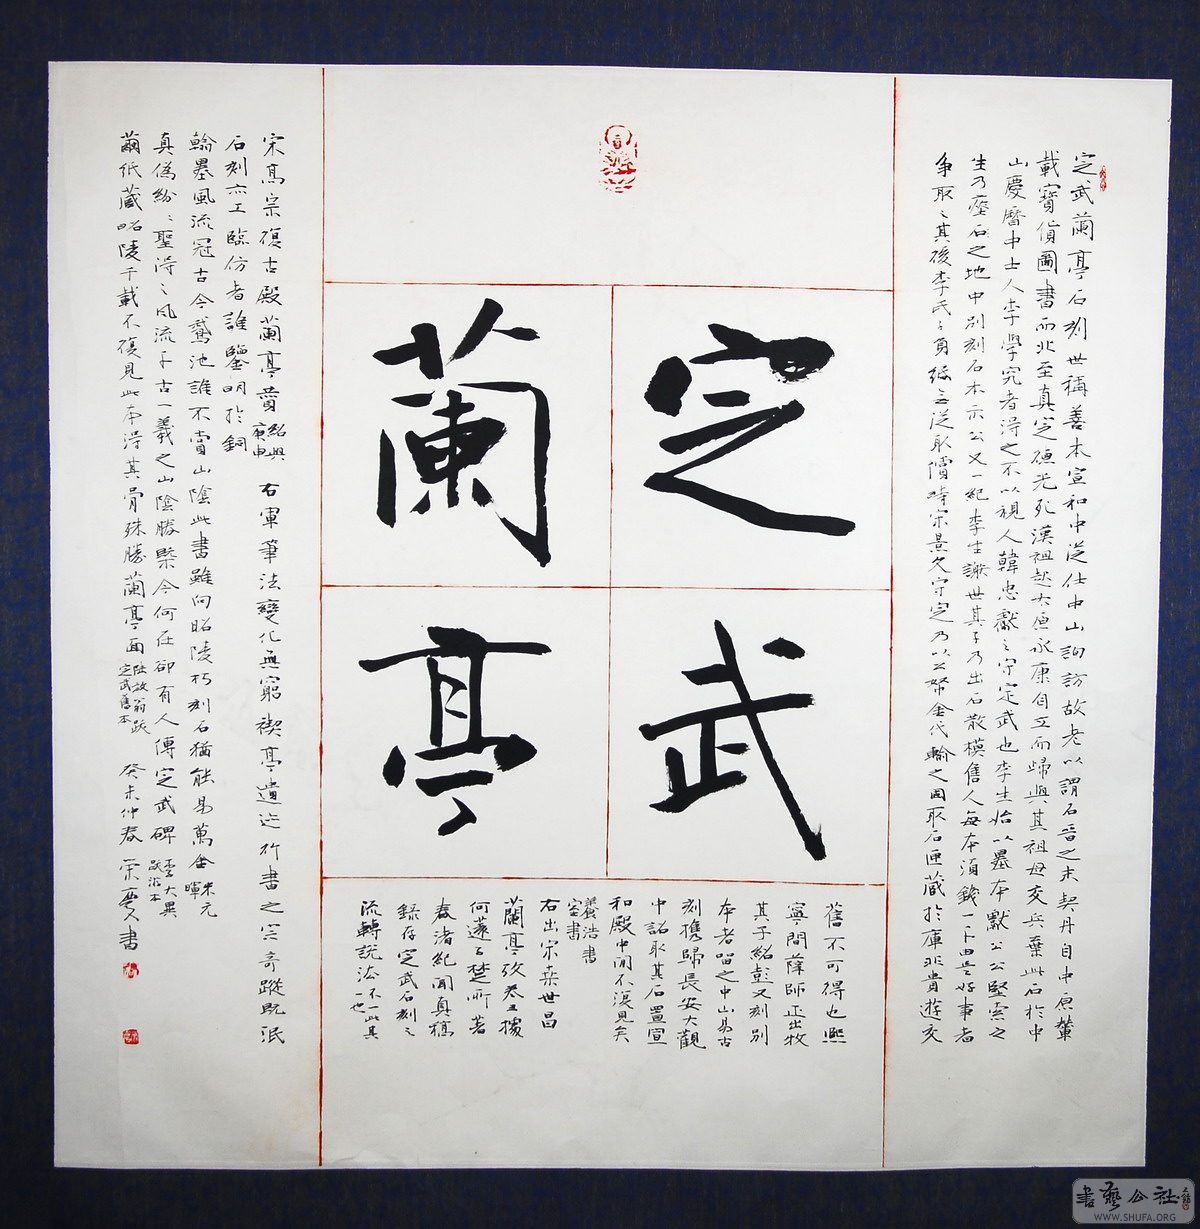 定武
蘭亭
定武蘭亭石刻世稱善本宣和中從仕中山詢訪故老以謂石晉之末契丹自中原輦
載寶貨圖書而北至真定德光死漢祖起太原永康自立而歸與其祖母交兵棄此石於中
山慶曆中士人李學究者得之不以視人韓忠獻之守定武也李生始以墨本獻公公堅索之
生乃瘞石之地中別刻石本示公又一紀李生謝世其子乃出石散模售人每本須錢一千由是好事者
爭取之其後李氏之負緡無從取償時宋景文守定乃以公帑金代輸之因取石匣藏於庫非貴遊交
舊不可得也熙
寧間薛師正出牧
其子紹彭又刻別
本者留之中山易古
刻攜歸長安大觀
中詔取其石置宣
和殿中間不復見矣
養浩書
室書
右出宋桑世昌
蘭亭攷卷五據
何薳子楚所著
春渚紀聞真
錄存定武石刻之
流轉說法不一此其
一也
宋高宗復古殿蘭亭贊 紹興庚申 右軍筆法變化無窮禊亭遺迹行書之宗奇蹤既泯
石刻亦工臨仿者誰鑒明於銅
翰墨風流冠古今鵞池誰不賞山陰此書雖向昭陵朽刻石猶能易萬金 朱元暉
真偽紛〻聖得之風流千古一羲之山陰勝槩今何在卻有人傳定武碑 李大異跋汝本
繭紙藏昭陵千載不復見此本得其骨殊勝蘭亭面 陸放翁跋定武舊本 癸未仲春 榮書
書藝公社
WWW.SHUFA.ORG